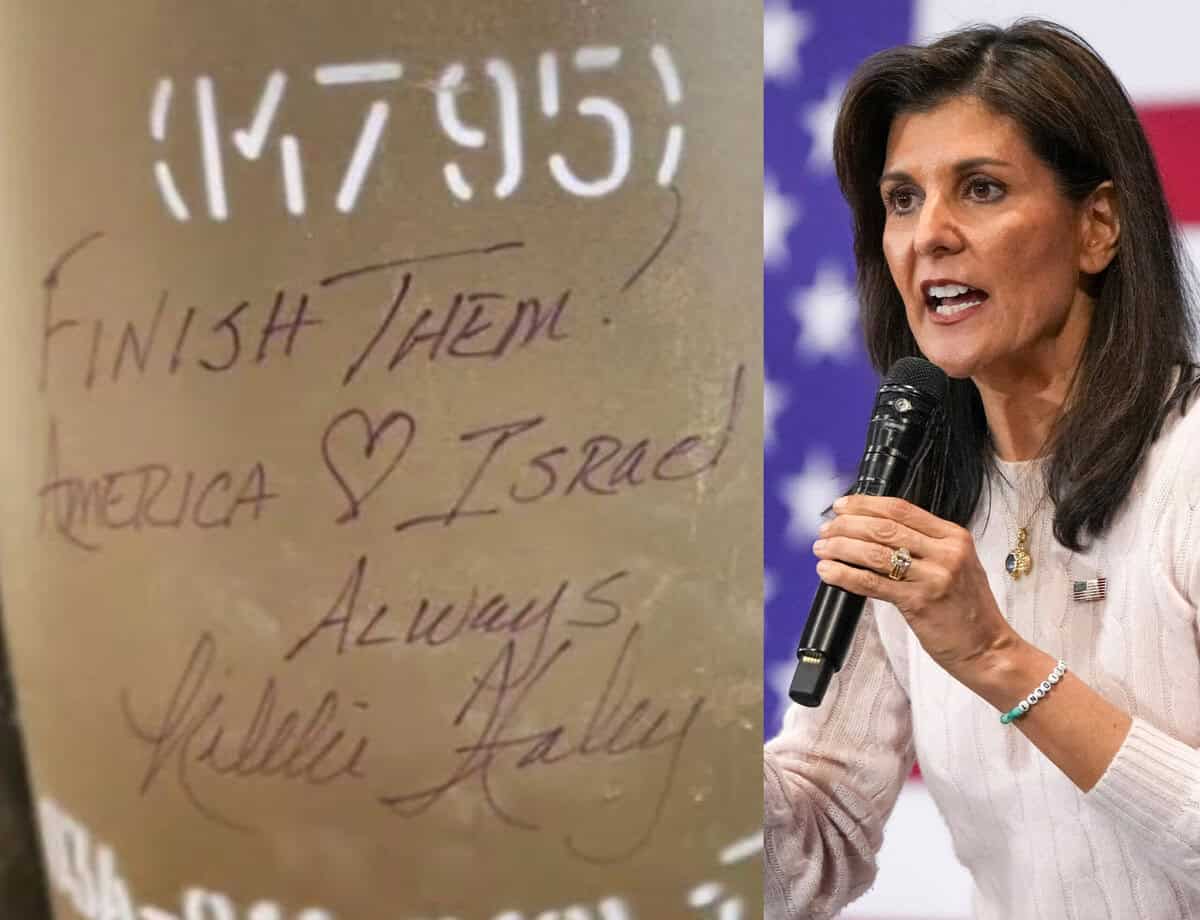 (M795)
FINISH THEM!
AMERICA ♡ ISRAEL
ALWAYS,
Nikki Haley